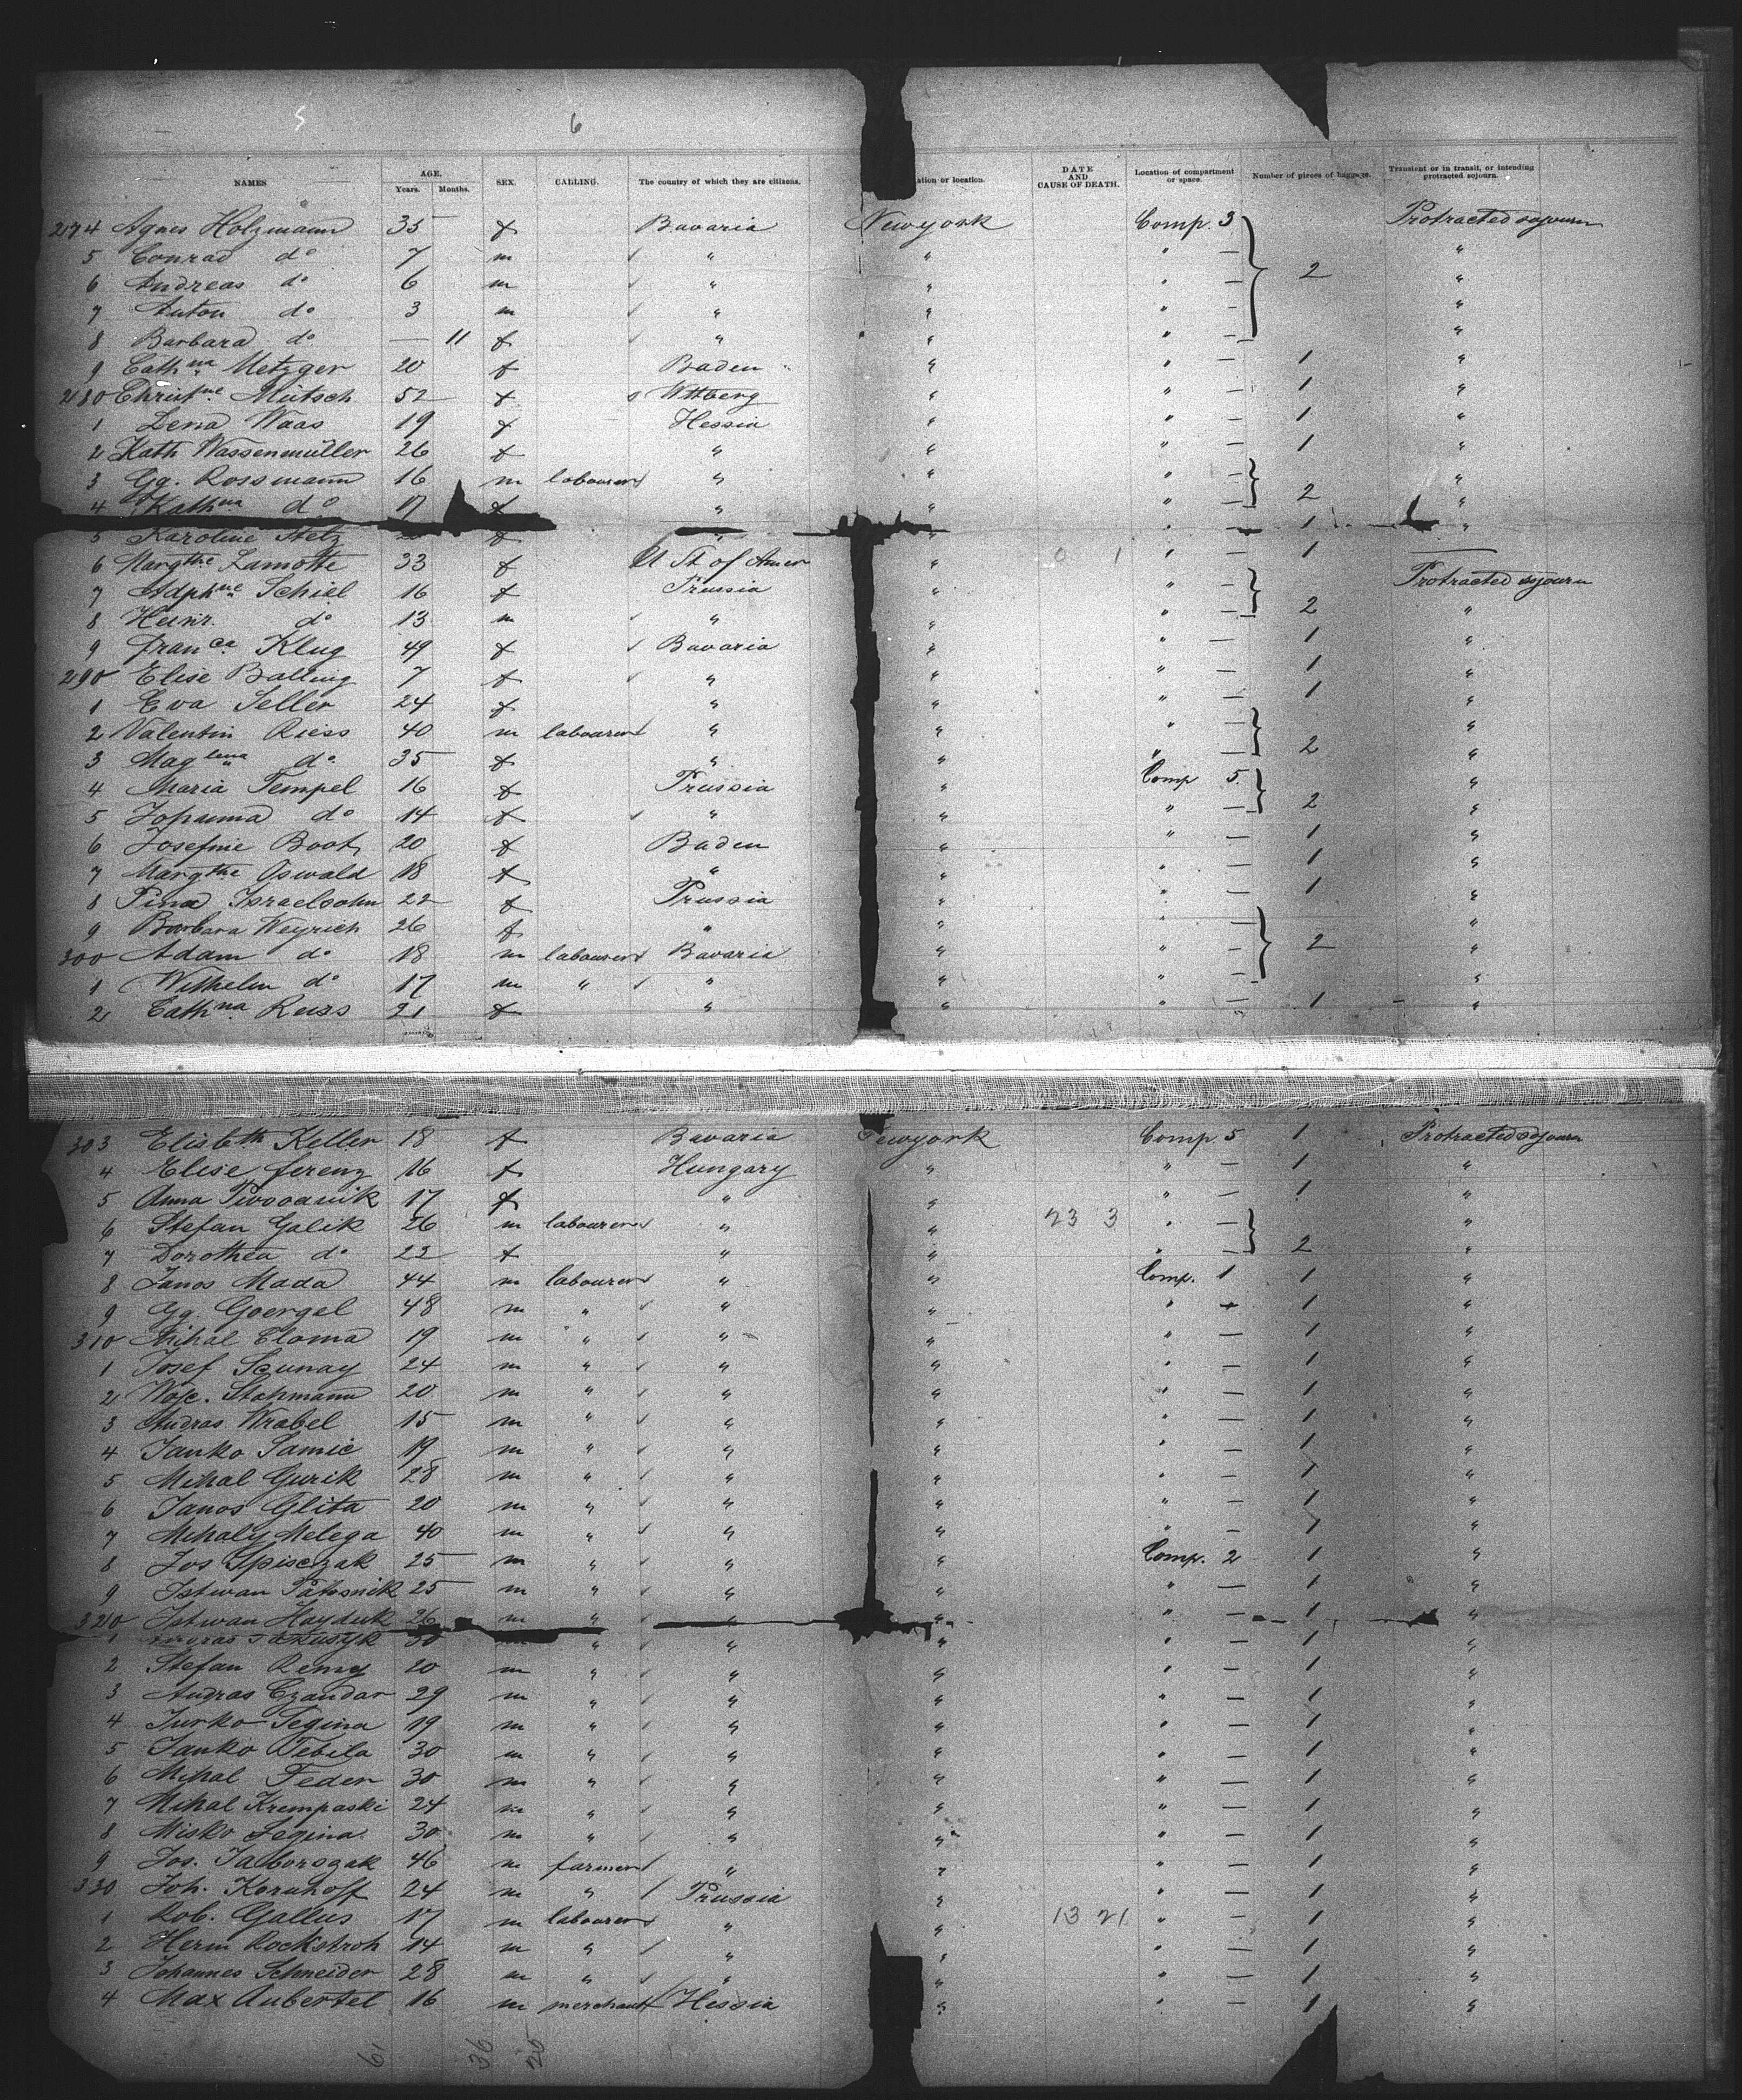 5 6
NAMES AGE. Years. Months. SEX. CALLING. The country of which they are citizens. ation or location. DATE AND CAUSE OF DEATH. Location of compartment or space. Number of pieces of baggage. Transient or in transit, or intending protracted sojourn.
274 Agnes Holzmann 35 f Bavaria Newyork Comp. 3 Protracted sojourn
5 Conrad do 7 m " " " — "
6 Andreas do 6 m " " " — 2 "
7 Anton do 3 m " " " — "
8 Barbara do — 11 f " " " — "
9 Cathna Metzger 20 f Baden " " — 1 "
280 Christne Mütsch 52 f Wttberg " " — 1 "
1 Lena Waas 19 f Hessia " " — 1 "
2 Kath Wassenmüller 26 f " " " — 1 "
3 Gg. Rossmann 16 m labourer " " " — "
4 Kathna do 17 f " " " — 2 "
5 Karoline Stetz f " " — 1 "
6 Margthe Lamotte 33 f U St of Amer " 0 1 " — 1 —
7 Adphne Schiel 16 f Prussia " " — Protracted sojourn
8 Heinr. do 13 m " " " — 2 "
9 Franca Klug 49 f Bavaria " " — 1 "
290 Elise Balling 7 f " " " — 1 "
1 Eva Seller 24 f " " " — 1 "
2 Valentin Riess 40 m labourer " " " — "
3 Maglena do 35 f " " " — 2 "
4 Maria Tempel 16 f Prussia " Comp 5 "
5 Johanna do 14 f " " " — 2 "
6 Josefine Boot 20 f Baden " " — 1 "
7 Margthe Oswald 18 f " " " — 1 "
8 Pina Israelsohn 22 f Prussia " " — 1 "
9 Barbara Weyrich 26 f " " " — "
300 Adam do 18 m labourer Bavaria " " — 2 "
1 Wilhelm do 17 m " " " " — "
2 Cathna Reiss 21 f " " " — 1 "
303 Elisbeth Keller 18 f Bavaria ewyork Comp. 5 1 Protracted sojourn
4 Elise Ferenz 16 f Hungary " " — 1 "
5 Anna 17 f " " " — 1 "
6 Stefan Galik 26 m labourer " " 23 3 " — "
7 Dorothea do 22 f " " " — 2 "
8 Janos Mada 44 m labourer " " Comp. 1 1 "
9 Gg. Goergel 48 m " " " " — 1 "
310 Mihal Cloma 19 m " " " " — 1 "
1 Josef Scunay 24 m " " " " — 1 "
2 Stahmann 20 m " " " " — 1 "
3 Andras Wrabel 15 m " " " " — 1 "
4 Janko Samie 19 m " " " " — 1 "
5 Mihal Gurik 28 m " " " " — 1 "
6 Janos Glita 20 m " " " " — 1 "
7 Mihaly Melega 40 m " " " " — 1 "
8 Jos Spisczak 25 m " " " Comp. 2 1 "
9 Istwan Patosnik 25 m " " " " — 1 "
320 Istwan Hayduk 26 m " " " " — 1 "
1 30 " " " " — 1 "
2 Stefan Remy 20 m " " " " — 1 "
3 Andras Czandar 29 m " " " " — 1 "
4 Jurko Segina 19 m " " " " — 1 "
5 Janko Tebila 30 m " " " " — 1 "
6 Mihal Feder 30 m " " " " — 1 "
7 Mihal Krempaski 24 m " " " " — 1 "
8 Misko Segina 30 m " " " " — 1 "
9 Jos. Jalborszak 46 m farmer " " " — 1 "
330 Joh. Kornhoff 24 m " Prussia " " — 1 "
1 Rob. Gallus 17 m labourer " " 13 21 " — 1 "
2 Herm Rockstroh 14 m " " " " — 1 "
3 Johannes Schneider 28 m " " " " — 1 "
4 Max Aubertel 16 m merchant Hessia " " — 1 "
61 36 25